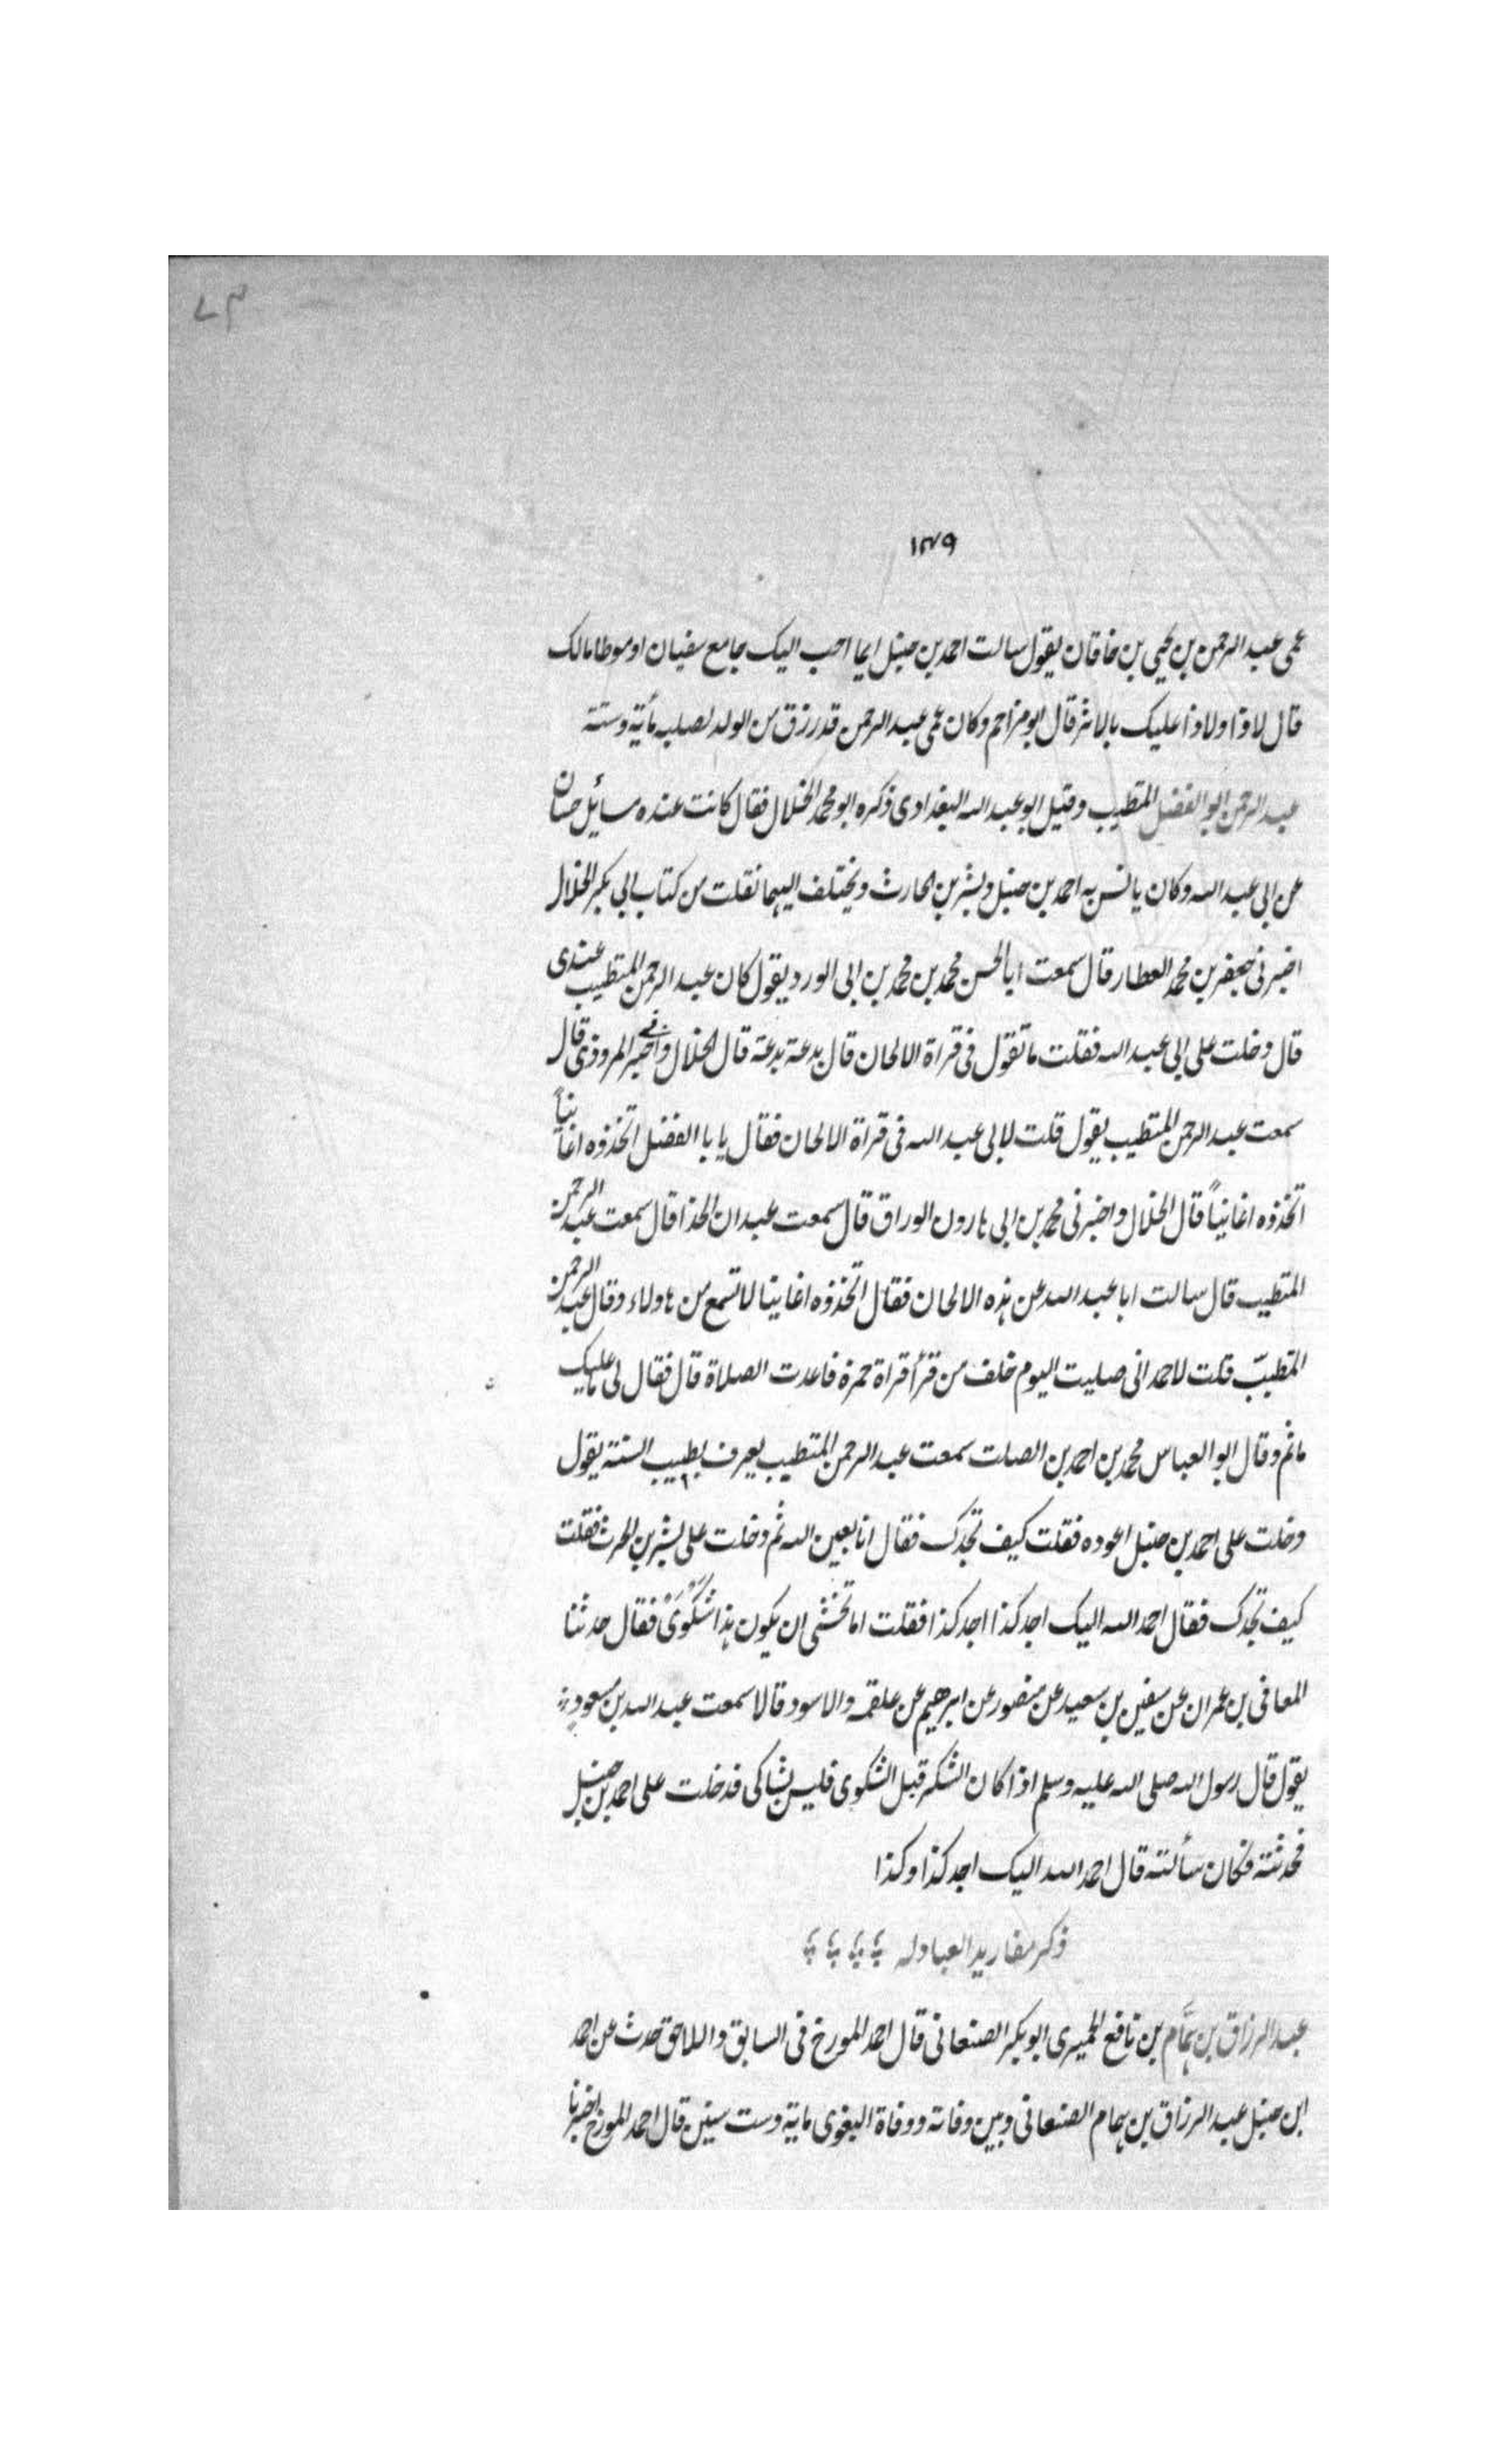 ١٤٩
عمى عبد الرحمن بن يحيى بن خاقان يقول سالت احمد بن حنبل ايما احب اليك جامع سفيان او موطا مالك
قال لا ذا ولا ذا عليك بالاثر قال ابو مزاحم وكان عمى عبد الرحمن قد رزق من الولد لصلبه مأية وستة
عبد الرحمن ابو الفضل المتطبب وقيل ابو عبد الله البغدادى ذكره ابو محمد الخلال فقال كانت عنده مسايل حسان
عن ابى عبد الله وكان يانس به احمد بن حنبل وبشر بن الحارث ويختلف اليهما نقلت من كتاب ابى بكر الخلال
اخبرنى جعفر بن محمد العطار قال سمعت ابا الحسن محمد بن محمد بن ابى الورد يقول كان عبد الرحمن المتطبب عندى
قال دخلت على ابى عبد الله فقلت ما تقول فى قراة الالحان قال بدعة بدعة قال الخلال واخبرنى المروذى قال
سمعت عبد الرحمن المتطبب يقول قلت لابى عبد الله فى قراة الالحان فقال يا با الفضل اتخذوه اغانياً
اتخذوه اغانياً قال الخلال واخبرنى محمد بن ابى هارون الوراق قال سمعت عبدان الحذا قال سمعت عبد الرحمن
المتطبب قال سالت ابا عبد الله عن هذه الالحان فقال اتخذوه اغانيا لا تسمع من هاولاء وقال عبد الرحمن
المتطبب قلت لاحمد انى صليت اليوم خلف من قرأ قراة حمزة فاعدت الصلاة قال فقال لى ما عليك
ماثم وقال ابو العباس محمد بن احمد بن الصلت سمعت عبد الرحمن المتطبب يعرف بطبيب السنة يقول
دخلت على احمد بن حنبل اعوده فقلت كيف تجدك فقال انا بعين الله ثم دخلت على بشر بن الحرث فقلت
كيف تجدك فقال احمد الله اليك اجد كذا اجد كذا فقلت اما تخشى ان يكون هذا شكوى فقال حدثنا
المعافى بن عمران عن سفين بن سعيد عن منصور عن ابرهيم عن علقمه والاسود قالا سمعت عبد الله بن مسعود
يقول قال رسول الله صلى الله عليه وسلم اذا كان الشكر قبل الشكوى فليس بشاكى فدخلت على احمد بن حنبل
فحدثته فكان سألته قال احمد الله اليك اجد كذا وكذا
ذكر مفاريد العبادله
عبد الرزاق بن همَّام بن نافع الحميرى ابو بكر الصنعانى قال احمد المورخ فى السابق واللاحق حدث عن احمد
ابن حنبل عبد الرزاق بن همام الصنعانى وبين وفاته ووفاة البغوى ماية وست سنين قال احمد المورخ اخبرنا